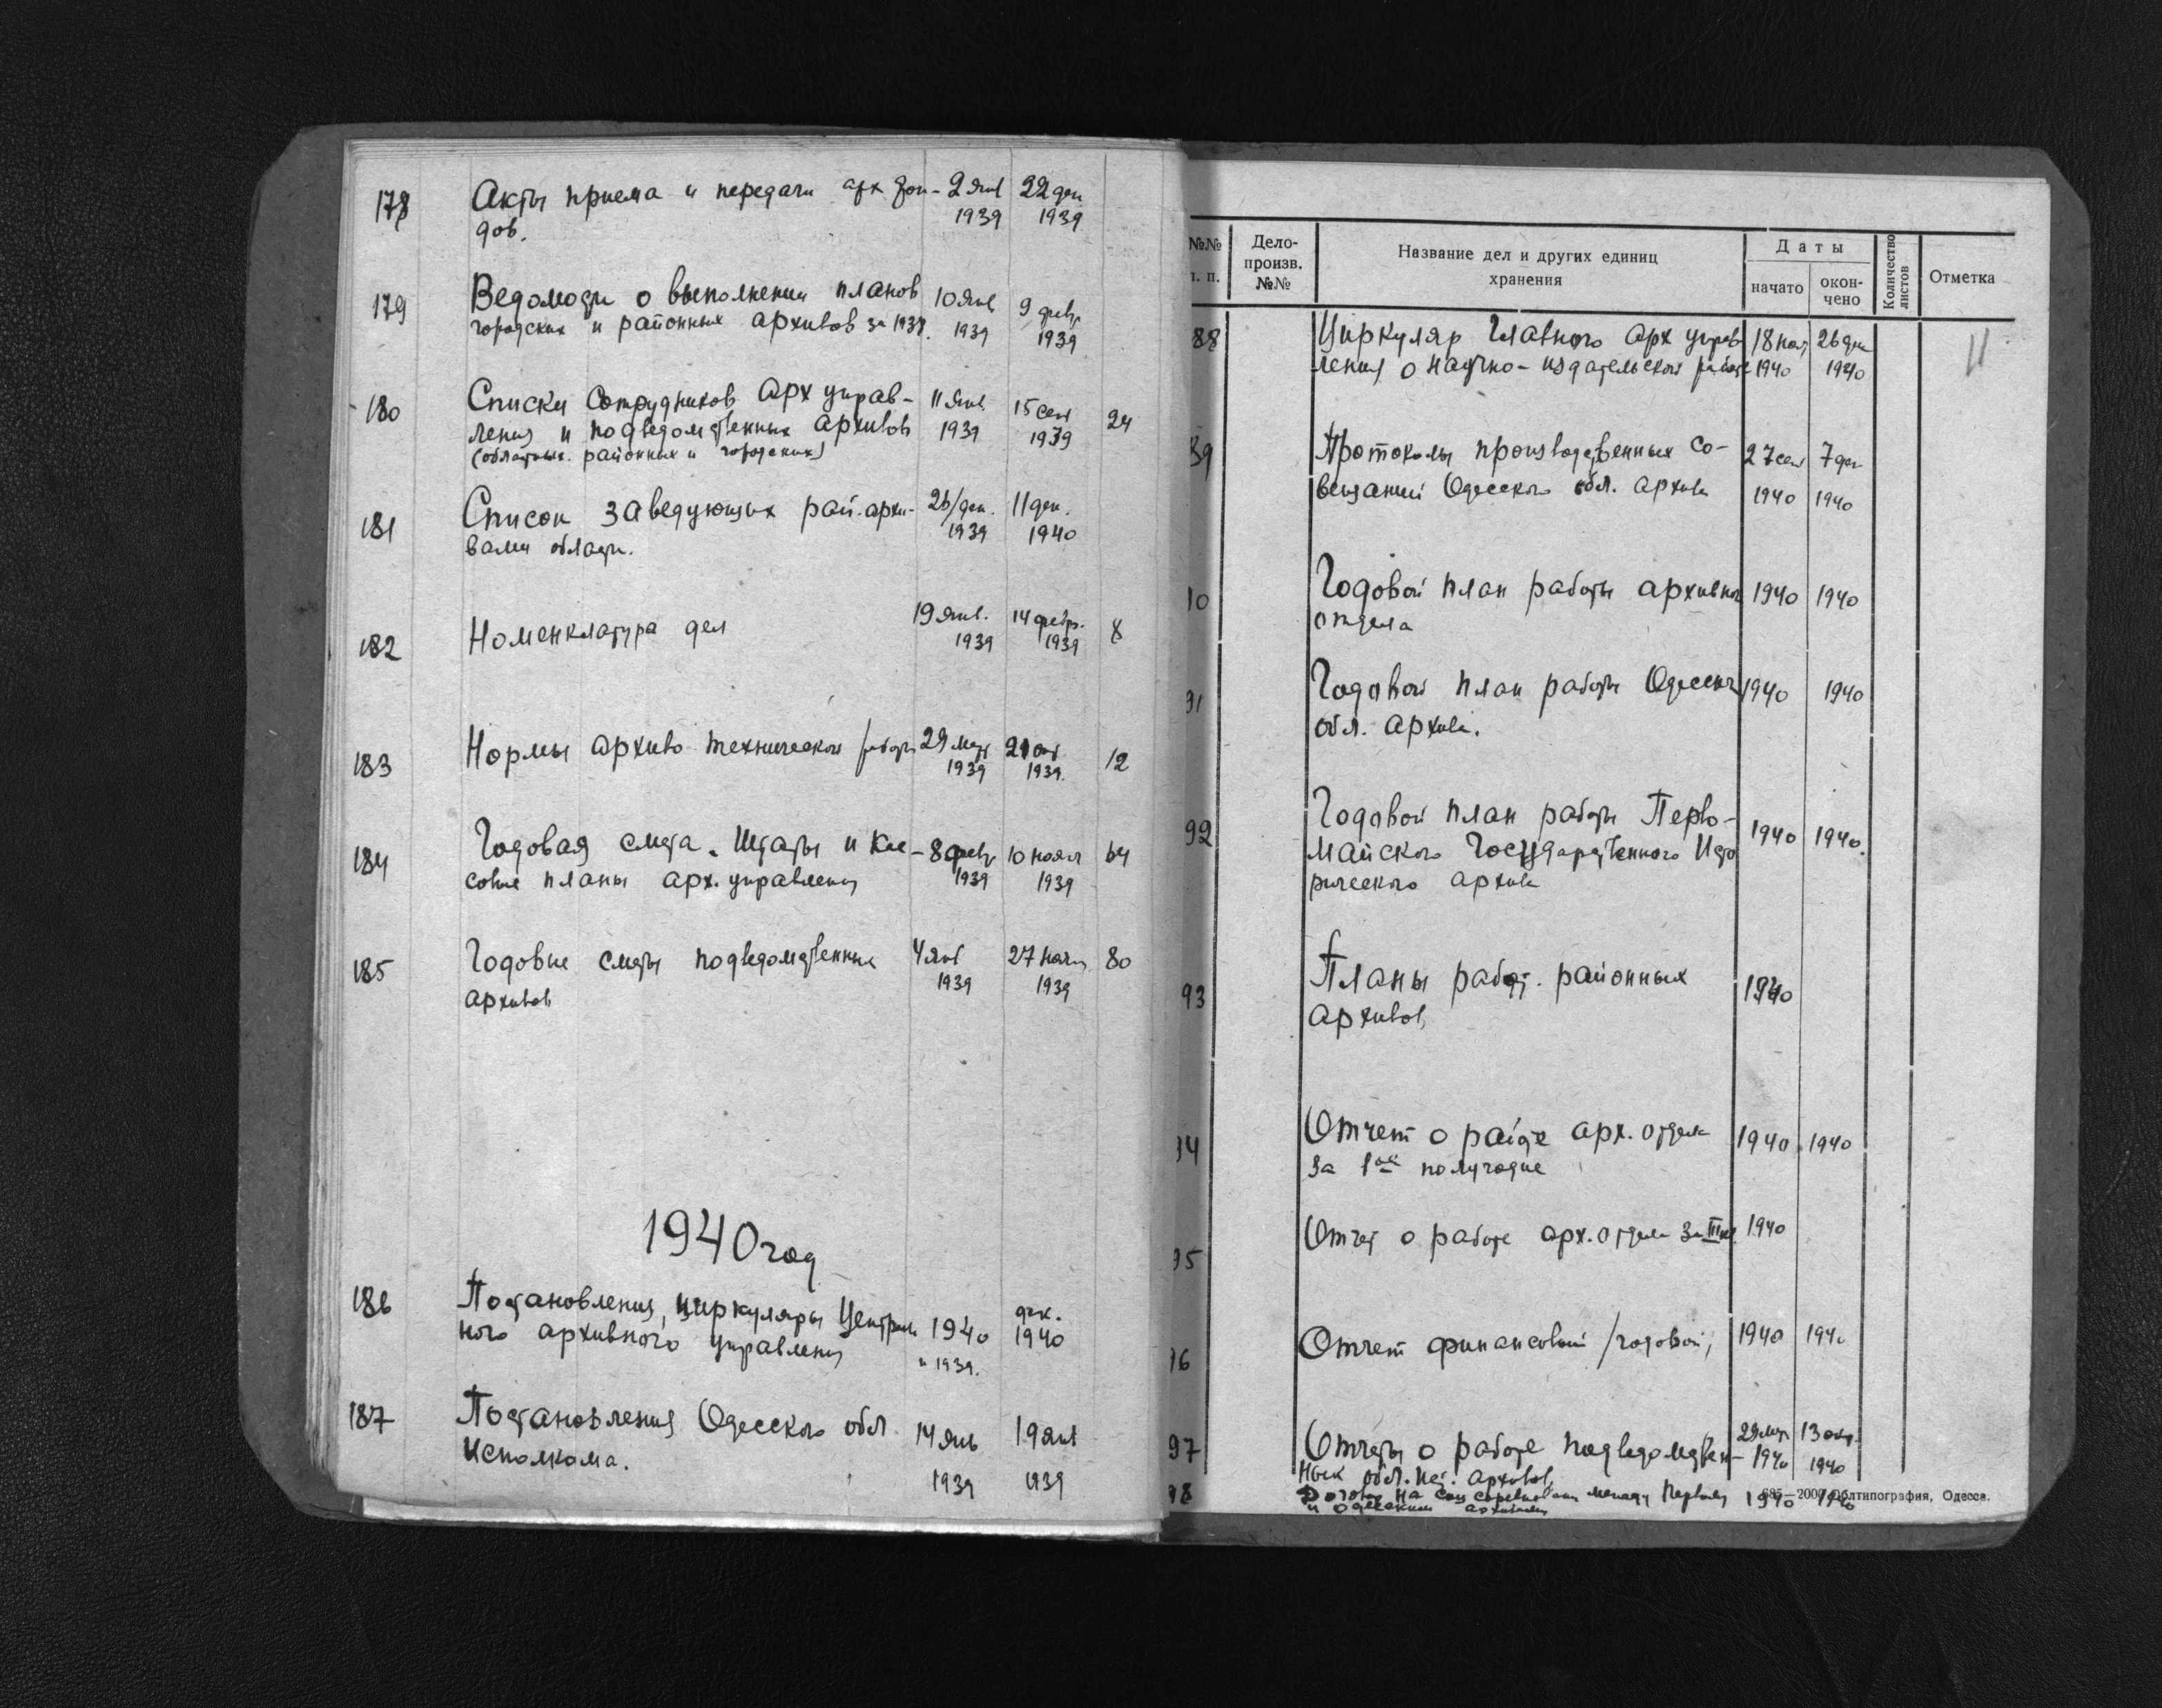 178 Акты приема и передачи арх фон- 2 янв 22 дек
дов. 1939 1939
179 Ведомости о выполнении планов 10 янв 9 февр
городских и районных архивов за 1938. 1939 1939
180 Списки сотрудников Арх управ- 11 янв 15 сент 24
ления и подведомственных архивов 1939 1939
(областных. районных и городских)
181 Список заведующих рай. архи- 26/дек. 11 дек.
вами области. 1939 1940
182 Номенклатура дел 19 янв. 14 февр. 8
1939 1939
183 Нормы архиво технической работы 29 март 21 окт 12
1939 1939.
184 Годовая смета. Штаты и кас- 8 февр 10 нояб 64
совые планы арх. управления 1939 1939
185 Годовые сметы подведомственных 4 янв 27 нояб 80
архивов 1939 1939
1940 год
186 Постановления, циркуляры Централь дек.
ного архивного управления 1940 1940
и 1939.
187 Постановления Одесского обл. 14 янв 19 янв
исполкома. 1939 1939
№№ п. п.
Дело-
произв.
№№
Название дел и других единиц
хранения
Даты
начато
окон-
чено
Количество
листов
Отметка
88 Циркуляр Главного Арх управ 18 ноя 26 дек 11
ления о научно-издательской работе 1940 1940
89 Протоколы производственных со- 27 сент 7 дек
вещаний Одесского обл. архива 1940 1940
90 Годовой план работы архивного 1940 1940
отдела
91 Годовой план работы Одесского 1940 1940
обл. архива.
92 Годовой план работы Перво- 1940 1940.
майского Государственного Исто
рического архива
93 Планы работ. районных 1940
архивов
94 Отчет о работе арх. отдела 1940 1940
за 1ое полугодие
95 Отчет о работе арх. отдела за III кв. 1940
96 Отчет финансовый /годовой/ 1940 1940
97 Отчеты о работе подведомствен- 29 мар 13 окт.
ных обл. ист. архивов 1940 1940
98 Договор на соц соревнование между Первом 1940 1940
и одесским архивами
685—2000 Облтипография, Одесса.